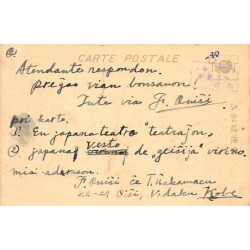 CARTE POSTALE
Atendante respondon.
preĝas vian bonsanon!
Tute via F. Oniŝi
poŝkarto.
1. En japana teatro "teatraĵon,
2. japanaj vesto de "geiŝija" virino.
mia adreson.
F. Oniŝi ĉe T. Nakamacu
Nadaku Kobe